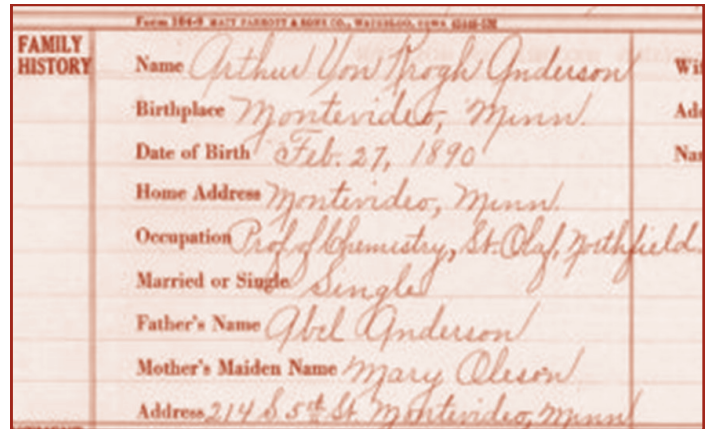 Form 164-9 MATT PARROTT & SONS CO., WATERLOO, IOWA
FAMILY HISTORY
Name Arthur Von Krogh Anderson Wi
Birthplace Montevideo, Minn. Ad
Date of Birth Feb. 27, 1890 Na
Home Address Montevideo, Minn.
Occupation Prof of Chemistry, St. Olaf, Northfield.
Married or Single Single
Father's Name Abel Anderson
Mother's Maiden Name Mary Oleson
Address 214 S 5th St. Montevideo, Minn